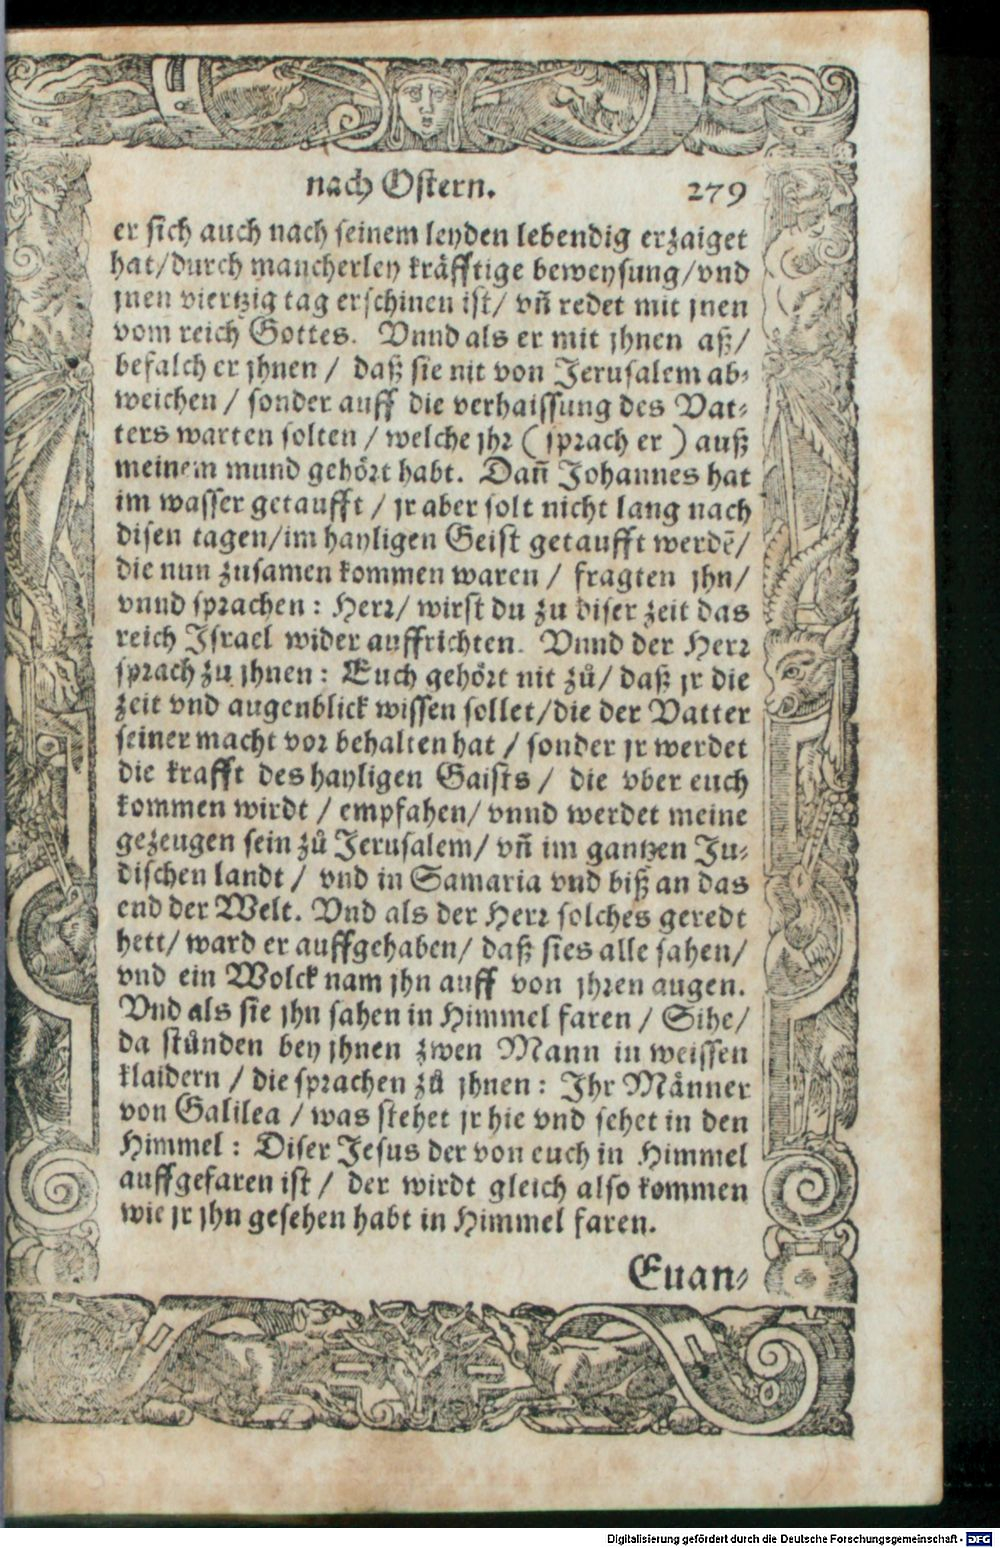 nach Ostern. 279
er sich auch nach seinem leyden lebendig erzaiget
hat/durch mancherley kräfftige beweysung/vnd
jnen viertzig tag erschinen ist/ vñ redet mit jnen
vom reich Gottes. Vnnd als er mit jhnen aß/
befalch er jhnen / daß sie nit von Jerusalem ab-
weichen / sonder auff die verhaissung des Vat-
ters warten solten / welche jhr ( sprach er ) auß
meinem mund gehört habt. Dañ Johannes hat
im wasser getaufft / jr aber solt nicht lang nach
disen tagen/im hayligen Geist getaufft werdẽ/
die nun zusamen kommen waren / fragten jhn/
vnnd sprachen : Herr/ wirst du zu diser zeit das
reich Israel wider auffrichten. Vnnd der Herr
sprach zu jhnen : Euch gehört nit zů/ daß jr die
zeit vnd augenblick wissen sollet/die der Vatter
seiner macht vor behalten hat / sonder jr werdet
die krafft des hayligen Gaists / die vber euch
kommen wirdt / empfahen/ vnnd werdet meine
gezeugen sein zů Jerusalem/ vñ im gantzen Ju-
dischen landt / vnd in Samaria vnd biß an das
end der Welt. Vnd als der Herr solches geredt
hett/ ward er auffgehaben/ daß sies alle sahen/
vnd ein Wolck nam jhn auff von jhren augen.
Vnd als sie jhn sahen in Himmel faren / Sihe/
da stůnden bey jhnen zwen Mann in weissen
klaidern / die sprachen zů jhnen : Ihr Männer
von Galilea / was stehet jr hie vnd sehet in den
Himmel : Diser Jesus der von euch in Himmel
auffgefaren ist / der wirdt gleich also kommen
wie jr jhn gesehen habt in Himmel faren.
Euan-
Digitalisierung gefördert durch die Deutsche Forschungsgemeinschaft - DFG